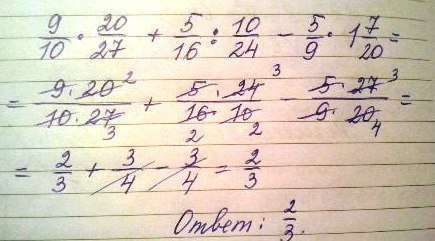 9/10 · 20/27 + 5/16 : 10/24 − 5/9 · 1 7/20 =
= 9·20 2/10·27 3 + 5·24 3/16 2·10 2 − 5·27 3/9·20 4 =
= 2/3 + 3/4 − 3/4 = 2/3
Ответ: 2/3.